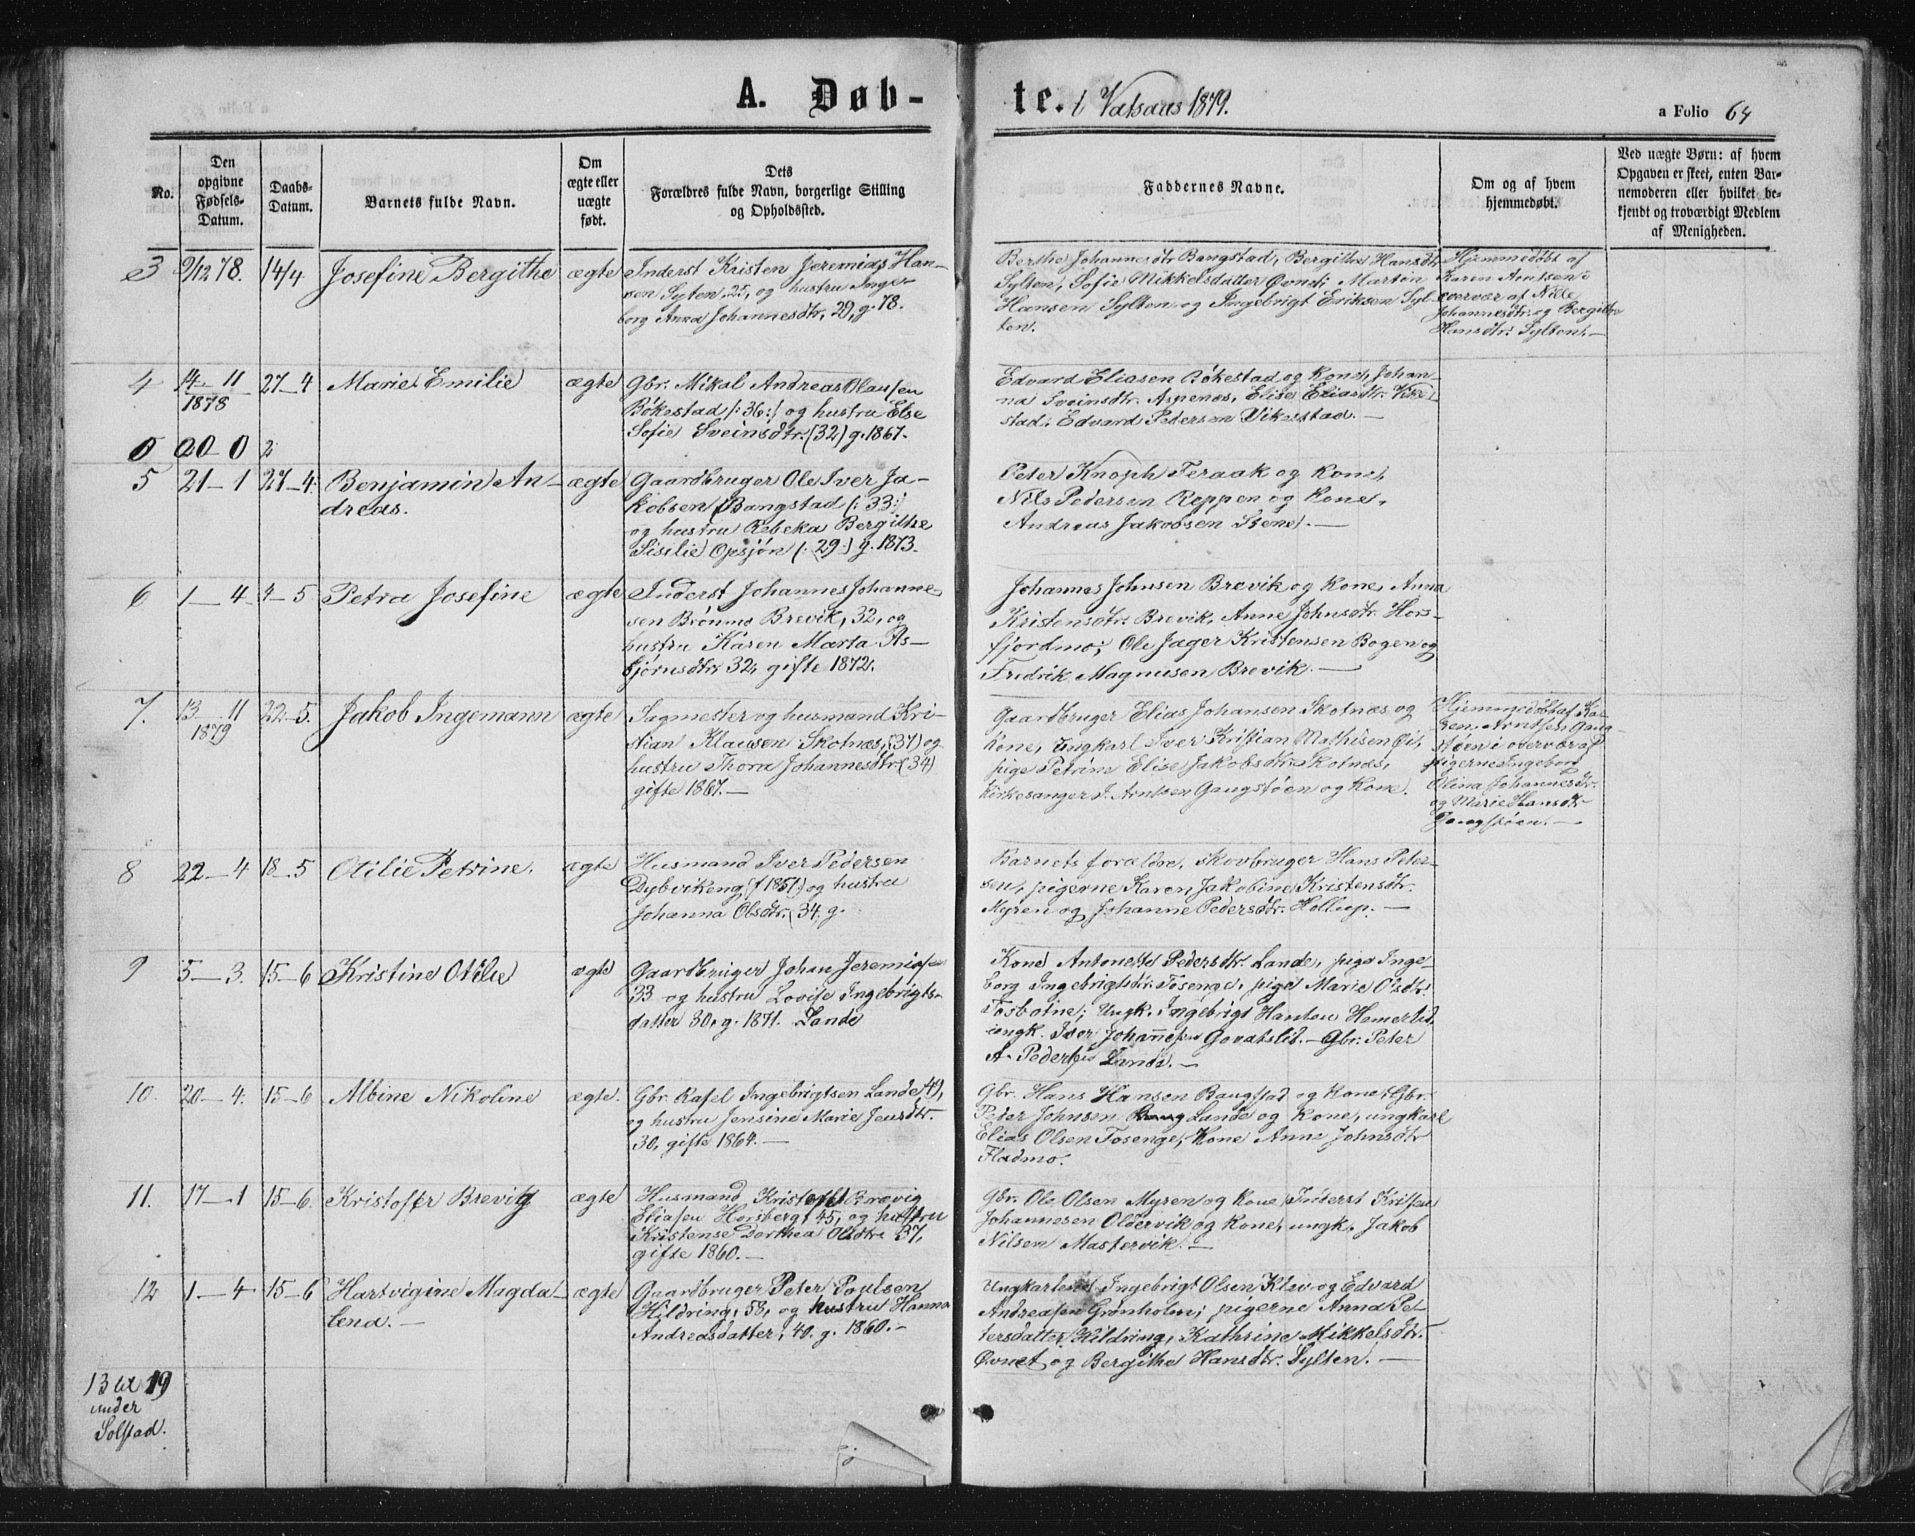 A. Døb-
te. i Vatsaas 1879.
a Folio 64
No.
Den
opgivne
Fødsels-
Datum.
Daabs-
Datum.
Barnets fulde Navn.
Om
ægte eller
uægte
født.
Dets
Forældres fulde Navn, borgerlige Stilling
og Opholdssted.
Faddernes Navne.
Om og af hvem
hjemmedøbt.
Ved uægte Børn: af hvem
Opgaven er skeet, enten Bar-
nemoderen eller hvilket be-
kjendt og troværdigt Medlem
af Menigheden.
3
9/12 78.
14/4
Josefine Bergithe
ægte
Inderst Kristen Jeremias Han-
sen Sylten, 25, og hustru Inge-
borg Anna Johannesdtr, 29, g. 78.
Berthe Johannesdtr Bangstad, Bergithe Hansdtr
Sylten, Sofie Mikkelsdatter Øvnet; Martin
Hansen Sylten og Ingebrigt Eriksen Syl-
ten.
Hjemmedøbt af
Karen Arntsen i
overvær af Nille
Johannesdtr. og Bergithe
Hansdtr. Sylten.
4
14 - 11
1878
27 - 4
Marie Emilie
ægte
Gbr. Mikal Andreas Olausen
Bökestad /: 36 :/ og hustru Else
Sofie Sveinsdtr. (32) g. 1867.
Edvard Eliasen Bökestad og kone, Johan-
na Sveinsdtr. Aspenæs, Elise Eliasdtr.
stad. Edvard Pedersen Vikestad.
0
20 - 0
2
5
21 - 1
27 - 4
Benjamin An-
dreas.
ægte
Gaardbruger Ole Iver Ja-
kobsen Bangstad (: 33 :)
og hustru Rebeka Bergithe
Sisilie Opsjøn (: 29 :) g. 1873.
Peter Knoph Teraak og kone,
Nils Pedersen Reppen og kone,
Andreas Jakobsen Stene.
6
1 - 4
4 - 5
Petra Josefine
ægte
Inderst Johannes Johanne-
sen Brønmo Brevik, 32, og
hustru Karen Marta As-
bjørnsdtr. 32, gifte 1872.
Johannes Johnsen Brevik og kone, Anna
Kristensdtr. Brevik, Anne Johnsdtr. Hors-
fjordmo; Ole Jager Kristensen Bogen og
Fredrik Magnusen Brevik.
7.
13 - 11
1879
22 - 5.
Jakob Ingemann
ægte
Sagmester og husmand Kri-
stian Klausen Skotnæs, (37) og
hustru Thora Johannesdtr. (34)
gifte 1867.
Gaardbruger Elias Johansen Skotnæs og
kone, Ungkarl Iver Kristian Mathisen
pige Petrine Elise Jakobsdtr. Skotnæs,
Kirkesanger J. Arntsen Gangstøen og kone.
Hjemmedøbt af Ka-
ren Arntsen Gang-
støen i overvær af
pigerne Ingeborg
Olina Johannesdtr.
og Marie Hansdtr.
Gangstøen.
8
22 - 4
18 - 5
Otilie Petrine.
ægte
Husmand Iver Pedersen
Dybvikeng (f 1851) og hustru
Johanna Olsdtr. (34, g.
Barnets forældre, skovbruger Hans Peter-
sen, pigerne Karen Jakobine Kristensdtr.
Myren og Johanne Pedersdtr. Hollup.
9
5 - 3.
15 - 6
Kristine Otilie
ægte
Gaardbruger Johan Jeremiasen
33 og hustru Lovise Ingebrigts-
datter 30, g. 1871. Lande
Kone Antonette Pedersdtr. Lande, pige Inge-
borg Ingebrigtsdtr. Tosenge, pige Marie Olsdtr.
Tosbotne; Ungk. Ingebrigt Hansen Homerlid,
ungk. Iver Johannesen Govatslid. - Gbr. Peter
A. Pedersen Lande.
10.
20 - 4.
15 - 6
Albine Nikoline
ægte.
Gbr. Rafel Ingebrigtsen Lande 49,
og hustru Jensine Marie Jensdtr.
30, gifte 1864.
Gbr. Hans Hansen Bangstad og kone, Gbr.
Peter Johnsen Lande og kone, ungkarl
Elias Olsen Tosenge, Kone Anne Johnsdtr
Fladmo.
11.
17 - 1
15 - 6.
Kristoffer Brevig
ægte
Husmand Kristoffer Brevig
Eliasen Horsberg, 45, og hustru
Kristense Dorthea Olsdtr 37,
gifte 1860.
Gbr. Ole Olsen Myren og kone, Inderst Kristen
Johannesen Oldervik og kone, ungk. Jakob
Nilsen Mastervik.
12
1 - 4
15 - 6
Hartvigine Magda-
lena.
ægte
Gaardbruger Peter Paulsen
Hildring, 53, og hustru Hanna
Andreasdatter, 40. g. 1860.
Ungkarlene Ingebrigt Olsen Klev og Edvard
Andreasen Grønholm; pigerne Anna Pe-
tersdatter Hildring, Kathrine Mikkelsdtr.
Øvnet og Bergithe Hansdtr. Sylten.
13 til 19
under
Solstad.